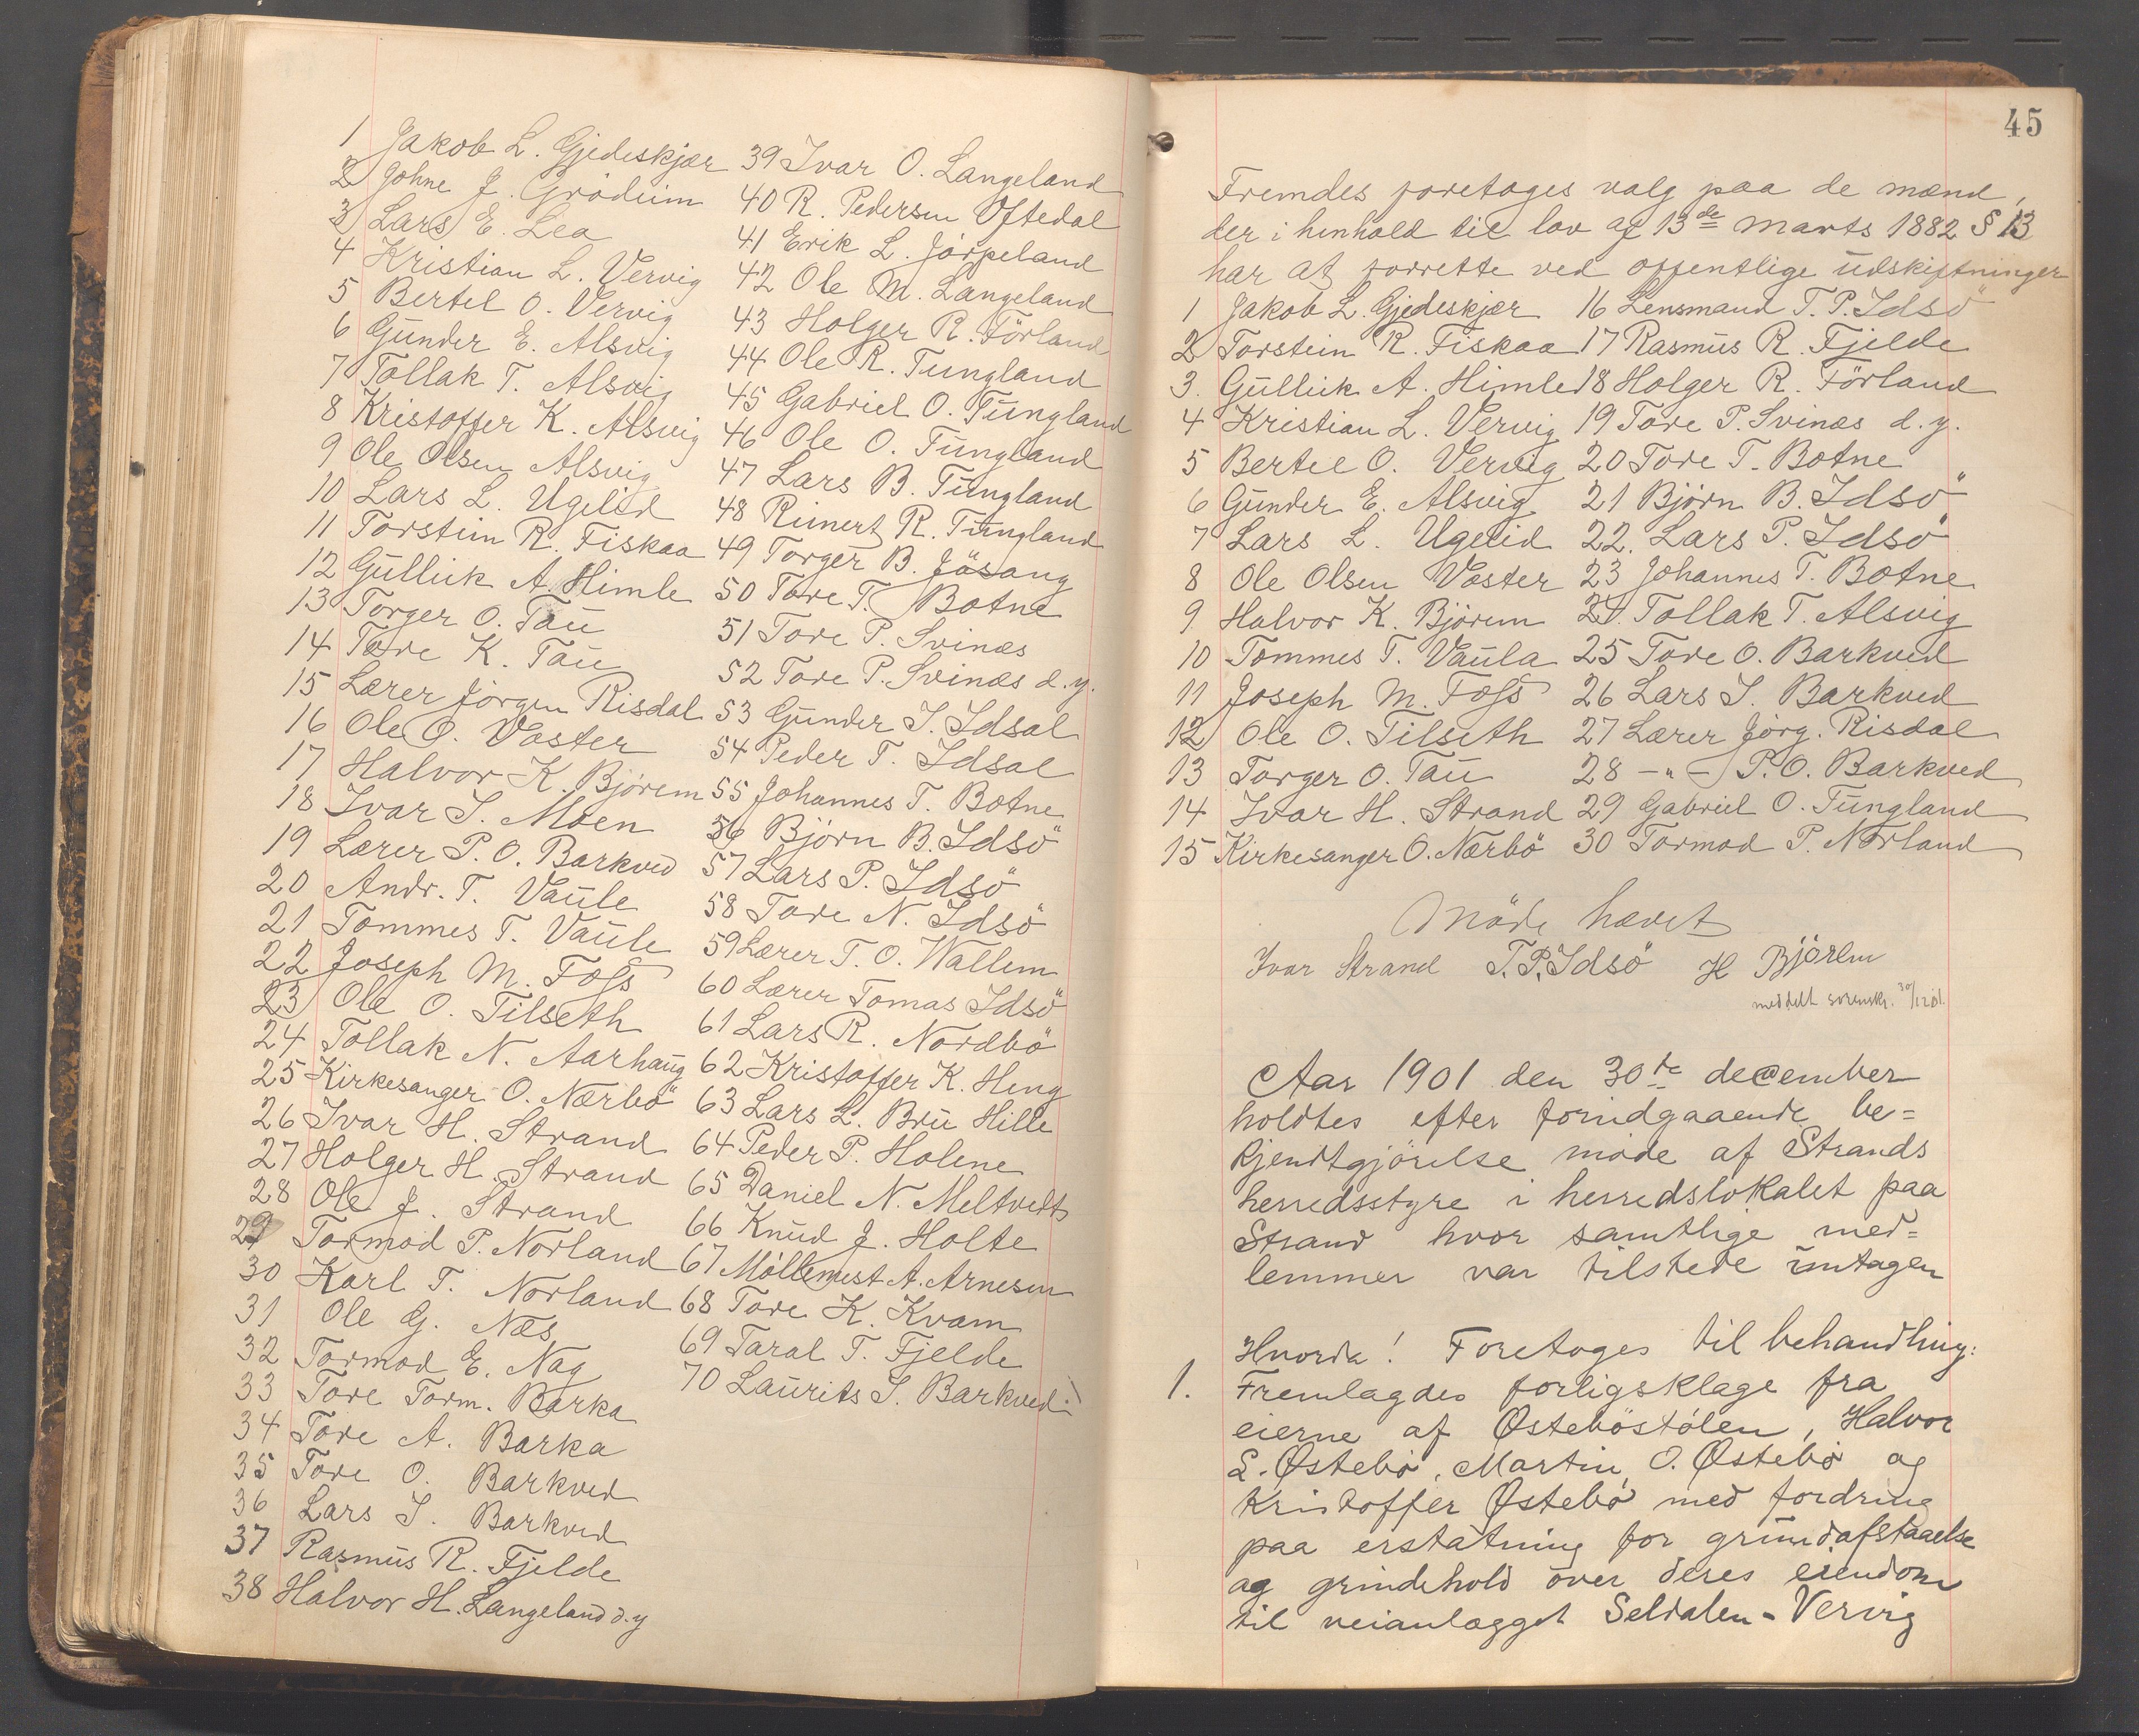 1 Jakob L. Gjedeskjær
2 Johne J. Grödeim
3 Lars E. Lea
4 Kristian L. Vervig
5 Bertel O. Vervig
6 Gunder E. Alsvig
7 Tollak T. Alsvig
8 Kristoffer K. Alsvig
9 Ole Olsen Alsvig
10 Lars L. Ugelid
11 Torstein R. Fiskaa
12 Gullik A. Himle
13 Torger O. Tau
14 Tore K. Tau
15 Lærer Jörgen Risdal
16 Ole O. Voster
17 Halvor K. Björem
18 Ivar S. Moen
19 Lærer P. O. Barkved
20 Andr. T. Vaule
21 Tommes T. Vaule
22 Joseph M. Foss
23 Ole O. Tilseth
24 Tollak N. Aarhaug
25 Kirkesanger O. Nærbö
26 Ivar H. Strand
27 Holger H. Strand
28 Ole J. Strand
29 Tormod P. Norland
30 Karl T. Norland
31 Ole G. Næs
32 Tormod E. Nag
33 Tore Torm. Barka
34 Tore A. Barka
35 Tore O. Barkved
36 Lars S. Barkved
37 Rasmus R. Fjelde
38 Halvor H. Langeland d.y
39 Ivar O. Langeland
40 R. Pedersen Oftedal
41 Erik L. Jörpeland
42 Ole M. Langeland
43 Holger R. Förland
44 Ole R. Tungland
45 Gabriel O. Tungland
46 Ole O. Tungland
47 Lars B. Tungland
48 Reinert R. Tungland
49 Torger B. Jösang
50 Tore T. Botne
51 Tore P. Svinæs
52 Tore P. Svinæs d.y.
53 Gunder S. Idsal
54 Peder T. Idsal
55 Johannes T. Botne
56 Björn B. Idsö
57 Lars P. Idsö
58 Tore N. Idsö
59 Lærer T. O. Wallem
60 Lærer Tomas Idsö
61 Lars R. Nordbö
62 Kristoffer K. Heng
63 Lars L. Bru Hille
64 Peder P. Holene
65 Daniel N. Meltvedt
66 Knud J. Holte
67 Möllemest A. Arnesen
68 Tore K. Kvam
69 Taral T. Fjelde
70 Laurits S. Barkved
45
Fremdes foretoges valg paa de mænd,
der i henhold til lov af 13de marts 1882 § 13
har at forrette ved offentlige udskiftninger
1 Jakob L. Gjedeskjær 16 Lensmand T. P. Idsö
2 Torstein R. Fiskaa 17 Rasmus R. Fjelde
3. Gullik A. Himle 18 Holger R. Förland
4 Kristian L. Vervig 19 Tore P. Svinæs d.y.
5 Bertel O. Vervig 20 Tore T. Botne
6 Gunder E. Alsvig 21 Björn B. Idsö
7 Lars L. Ugelid 22. Lars P. Idsö
8 Ole Olsen Voster 23 Johannes T. Botne
9 Halvor K. Björem 24. Tollak T. Alsvig
10 Tommes T. Vaula 25 Tore O. Barkved
11 Joseph M. Foss 26 Lars S. Barkved
12 Ole O. Tilseth 27 Lærer Jörg. Risdal
13 Torger O. Tau 28 -"- P. O. Barkved
14 Ivar H. Strand 29 Gabriel O. Tungland
15 Kirkesanger O. Nærbö 30 Tormod P. Norland
Möde hævet
Ivar Strand T. P. Idsö H Björem
meddelt sorensk. 30/12 01.
Aar 1901 den 30te december
holdtes efter forudgaaende be=
kjendtgjörelse möde af Strands
herredsstyre i herredslokalet paa
Strand hvor samtlige med=
lemmer var tilstede untagen
Hvorda! Foretoges til behandling:
1. Fremlagdes forligsklage fra
eierne af Østeböstölen, Halvor
L. Østebö, Martin O. Østebö og
Kristoffer Østebö med fordring
paa erstatning for grundafstaaelse
og grindehold over deres eiendom
til veianlægget Seldalen - Vervig